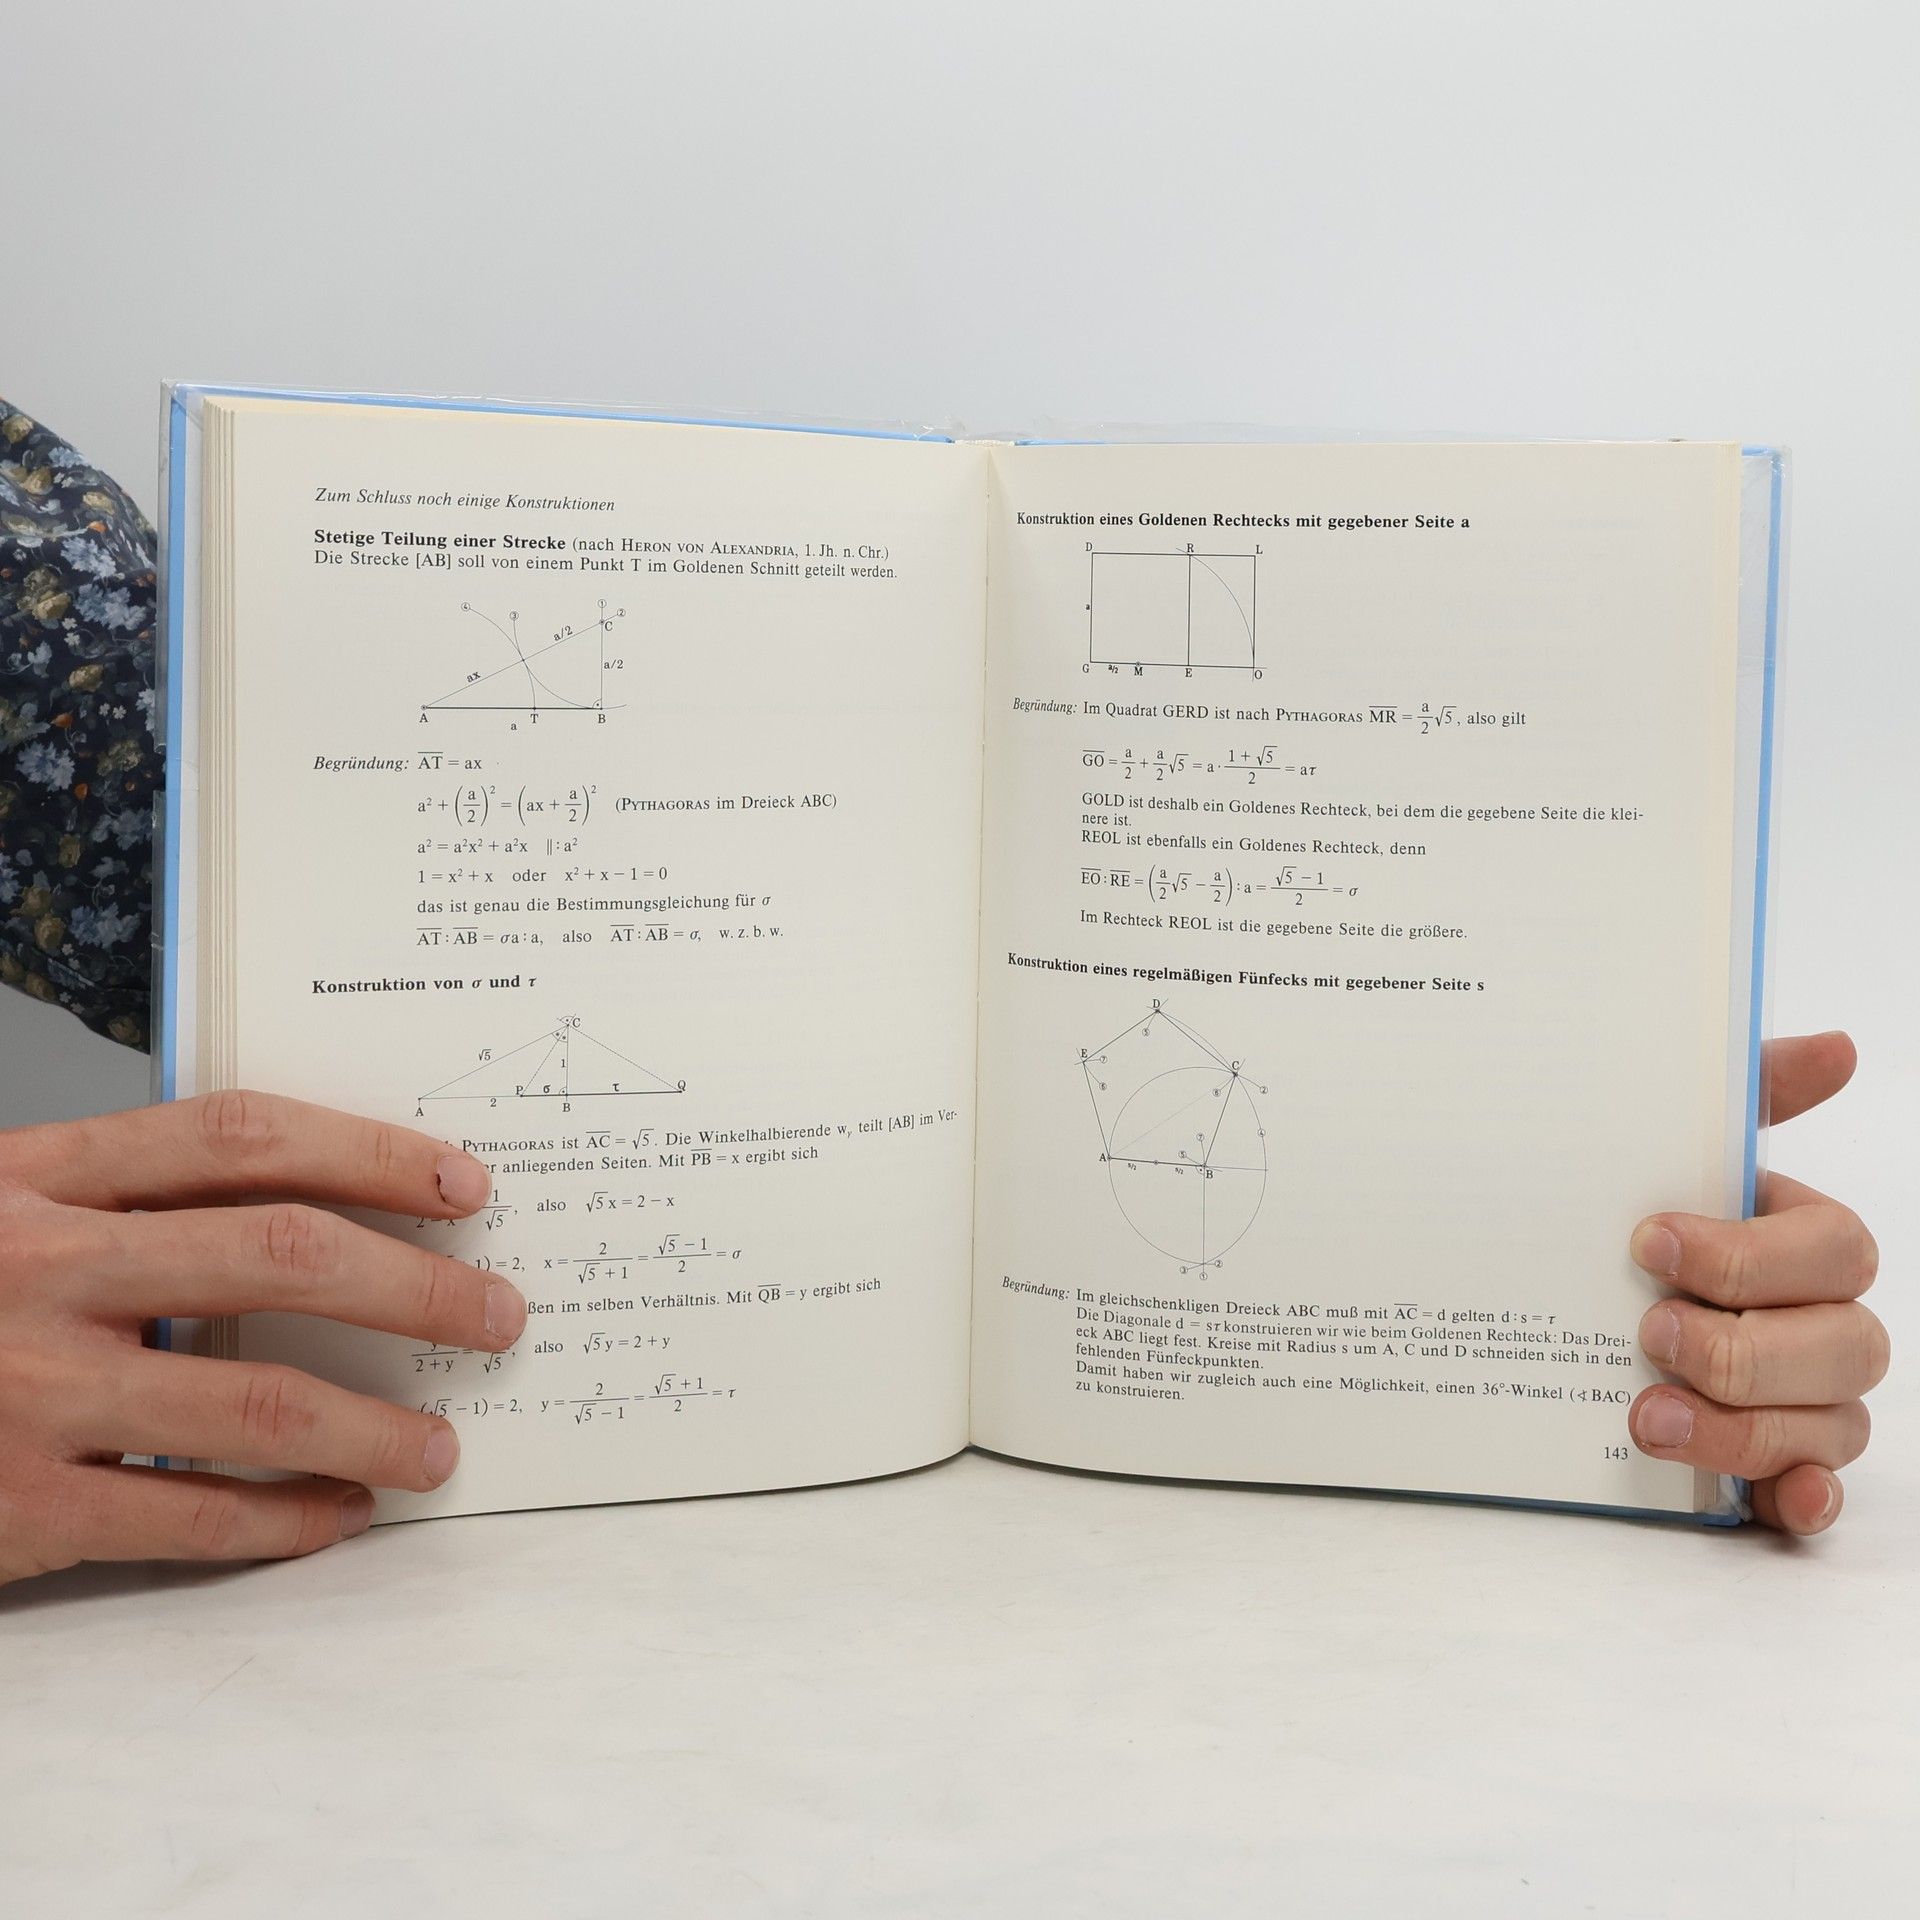 Zum Schluss noch einige Konstruktionen
Stetige Teilung einer Strecke (nach HERON VON ALEXANDRIA, 1. Jh. n. Chr.)
Die Strecke [AB] soll von einem Punkt T im Goldenen Schnitt geteilt werden.
④ ③ ① ②
C
a/2
a/2
ax
A T B
a
Begründung: A̅T̅ = ax
a² + (a/2)² = (ax + a/2)² (PYTHAGORAS im Dreieck ABC)
a² = a²x² + a²x ‖ : a²
1 = x² + x oder x² + x − 1 = 0
das ist genau die Bestimmungsgleichung für σ
A̅T̅ : A̅B̅ = σa : a, also A̅T̅ : A̅B̅ = σ, w. z. b. w.
Konstruktion von σ und τ
C
√5
1
P σ τ Q
A 2 B
PYTHAGORAS ist A̅C̅ = √5. Die Winkelhalbierende wᵧ teilt [AB] im Ver-
anliegenden Seiten. Mit P̅B̅ = x ergibt sich
1/√5, also √5 x = 2 − x
1) = 2, x = 2/(√5 + 1) = (√5 − 1)/2 = σ
ßen im selben Verhältnis. Mit Q̅B̅ = y ergibt sich
y/(2 + y) = /√5, also √5 y = 2 + y
(√5 − 1) = 2, y = 2/(√5 − 1) = (√5 + 1)/2 = τ
Konstruktion eines Goldenen Rechtecks mit gegebener Seite a
D R L
a
G a/2 M E O
Begründung: Im Quadrat GERD ist nach PYTHAGORAS M̅R̅ = a/2 √5, also gilt
G̅O̅ = a/2 + a/2 √5 = a · (1 + √5)/2 = aτ
GOLD ist deshalb ein Goldenes Rechteck, bei dem die gegebene Seite die klei-
nere ist.
REOL ist ebenfalls ein Goldenes Rechteck, denn
E̅O̅ : R̅E̅ = (a/2 √5 − a/2) : a = (√5 − 1)/2 = σ
Im Rechteck REOL ist die gegebene Seite die größere.
Konstruktion eines regelmäßigen Fünfecks mit gegebener Seite s
D
⑤
E ⑦ C
⑥ ⑥ ②
⑦ ④
A ⑤
s/2 s/2 B
③ ② ①
Begründung: Im gleichschenkligen Dreieck ABC muß mit A̅C̅ = d gelten d : s = τ
Die Diagonale d = sτ konstruieren wir wie beim Goldenen Rechteck: Das Drei-
eck ABC liegt fest. Kreise mit Radius s um A, C und D schneiden sich in den
fehlenden Fünfeckpunkten.
Damit haben wir zugleich auch eine Möglichkeit, einen 36°-Winkel (∢ BAC)
zu konstruieren.
143